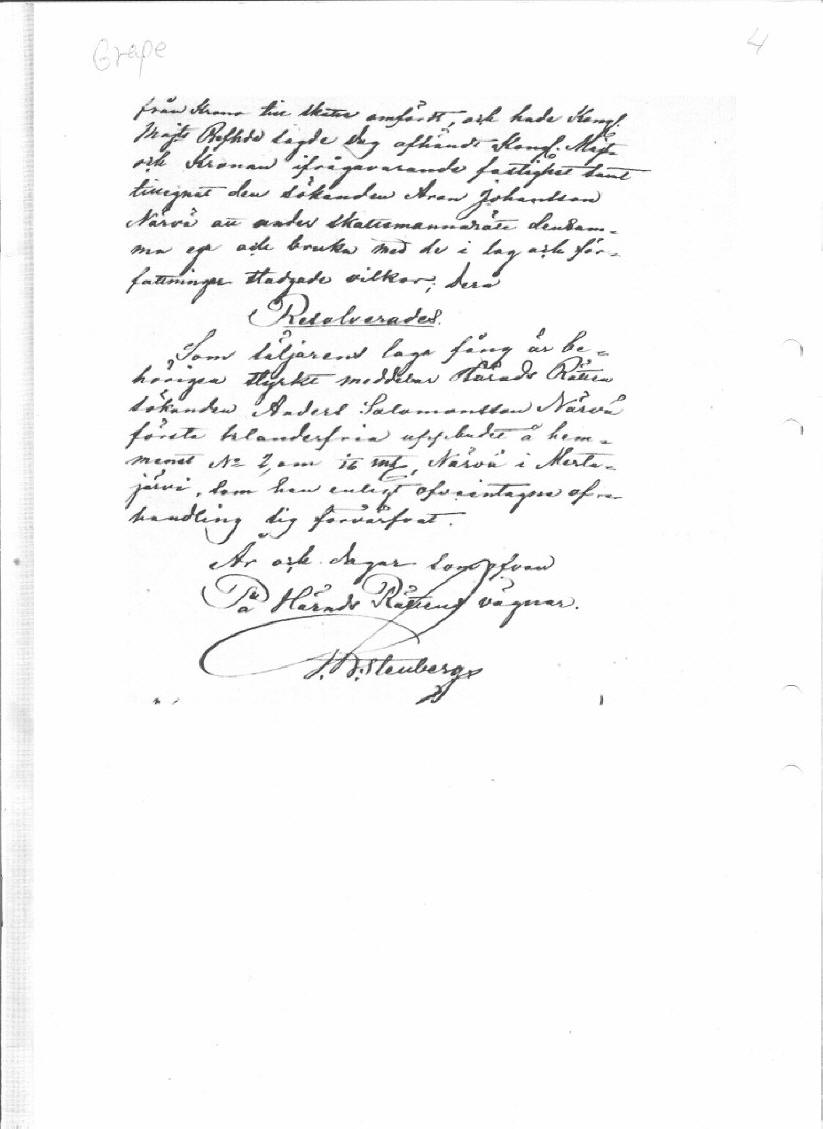 Grape
4
från Krono till skatte omfördt, och hade Kongl.
Majts Befhde sagde dag afhändt Kongl. Majt
och Kronan ifrågavarande fastighet samt
tillegnat den sökanden Aron Johansson
Närvä att under skattemannarätt densam-
ma ega och bruka med de i lag och för-
fattningar stadgade vilkor; dera
Resolverades.
Som säljarens laga fång är be-
hörigen styrkt meddelar Härads Rätten
sökanden Anders Salomonsson Närvä
första klanderfria uppbudet å hem-
manet No 2, om mtl, Närvä i Merta-
järvi, som han enligt ofvanintagna af-
handling sig förvärfvat.
År och dagar som ofvan
På Härads Rättens vägnar.
Stenberg